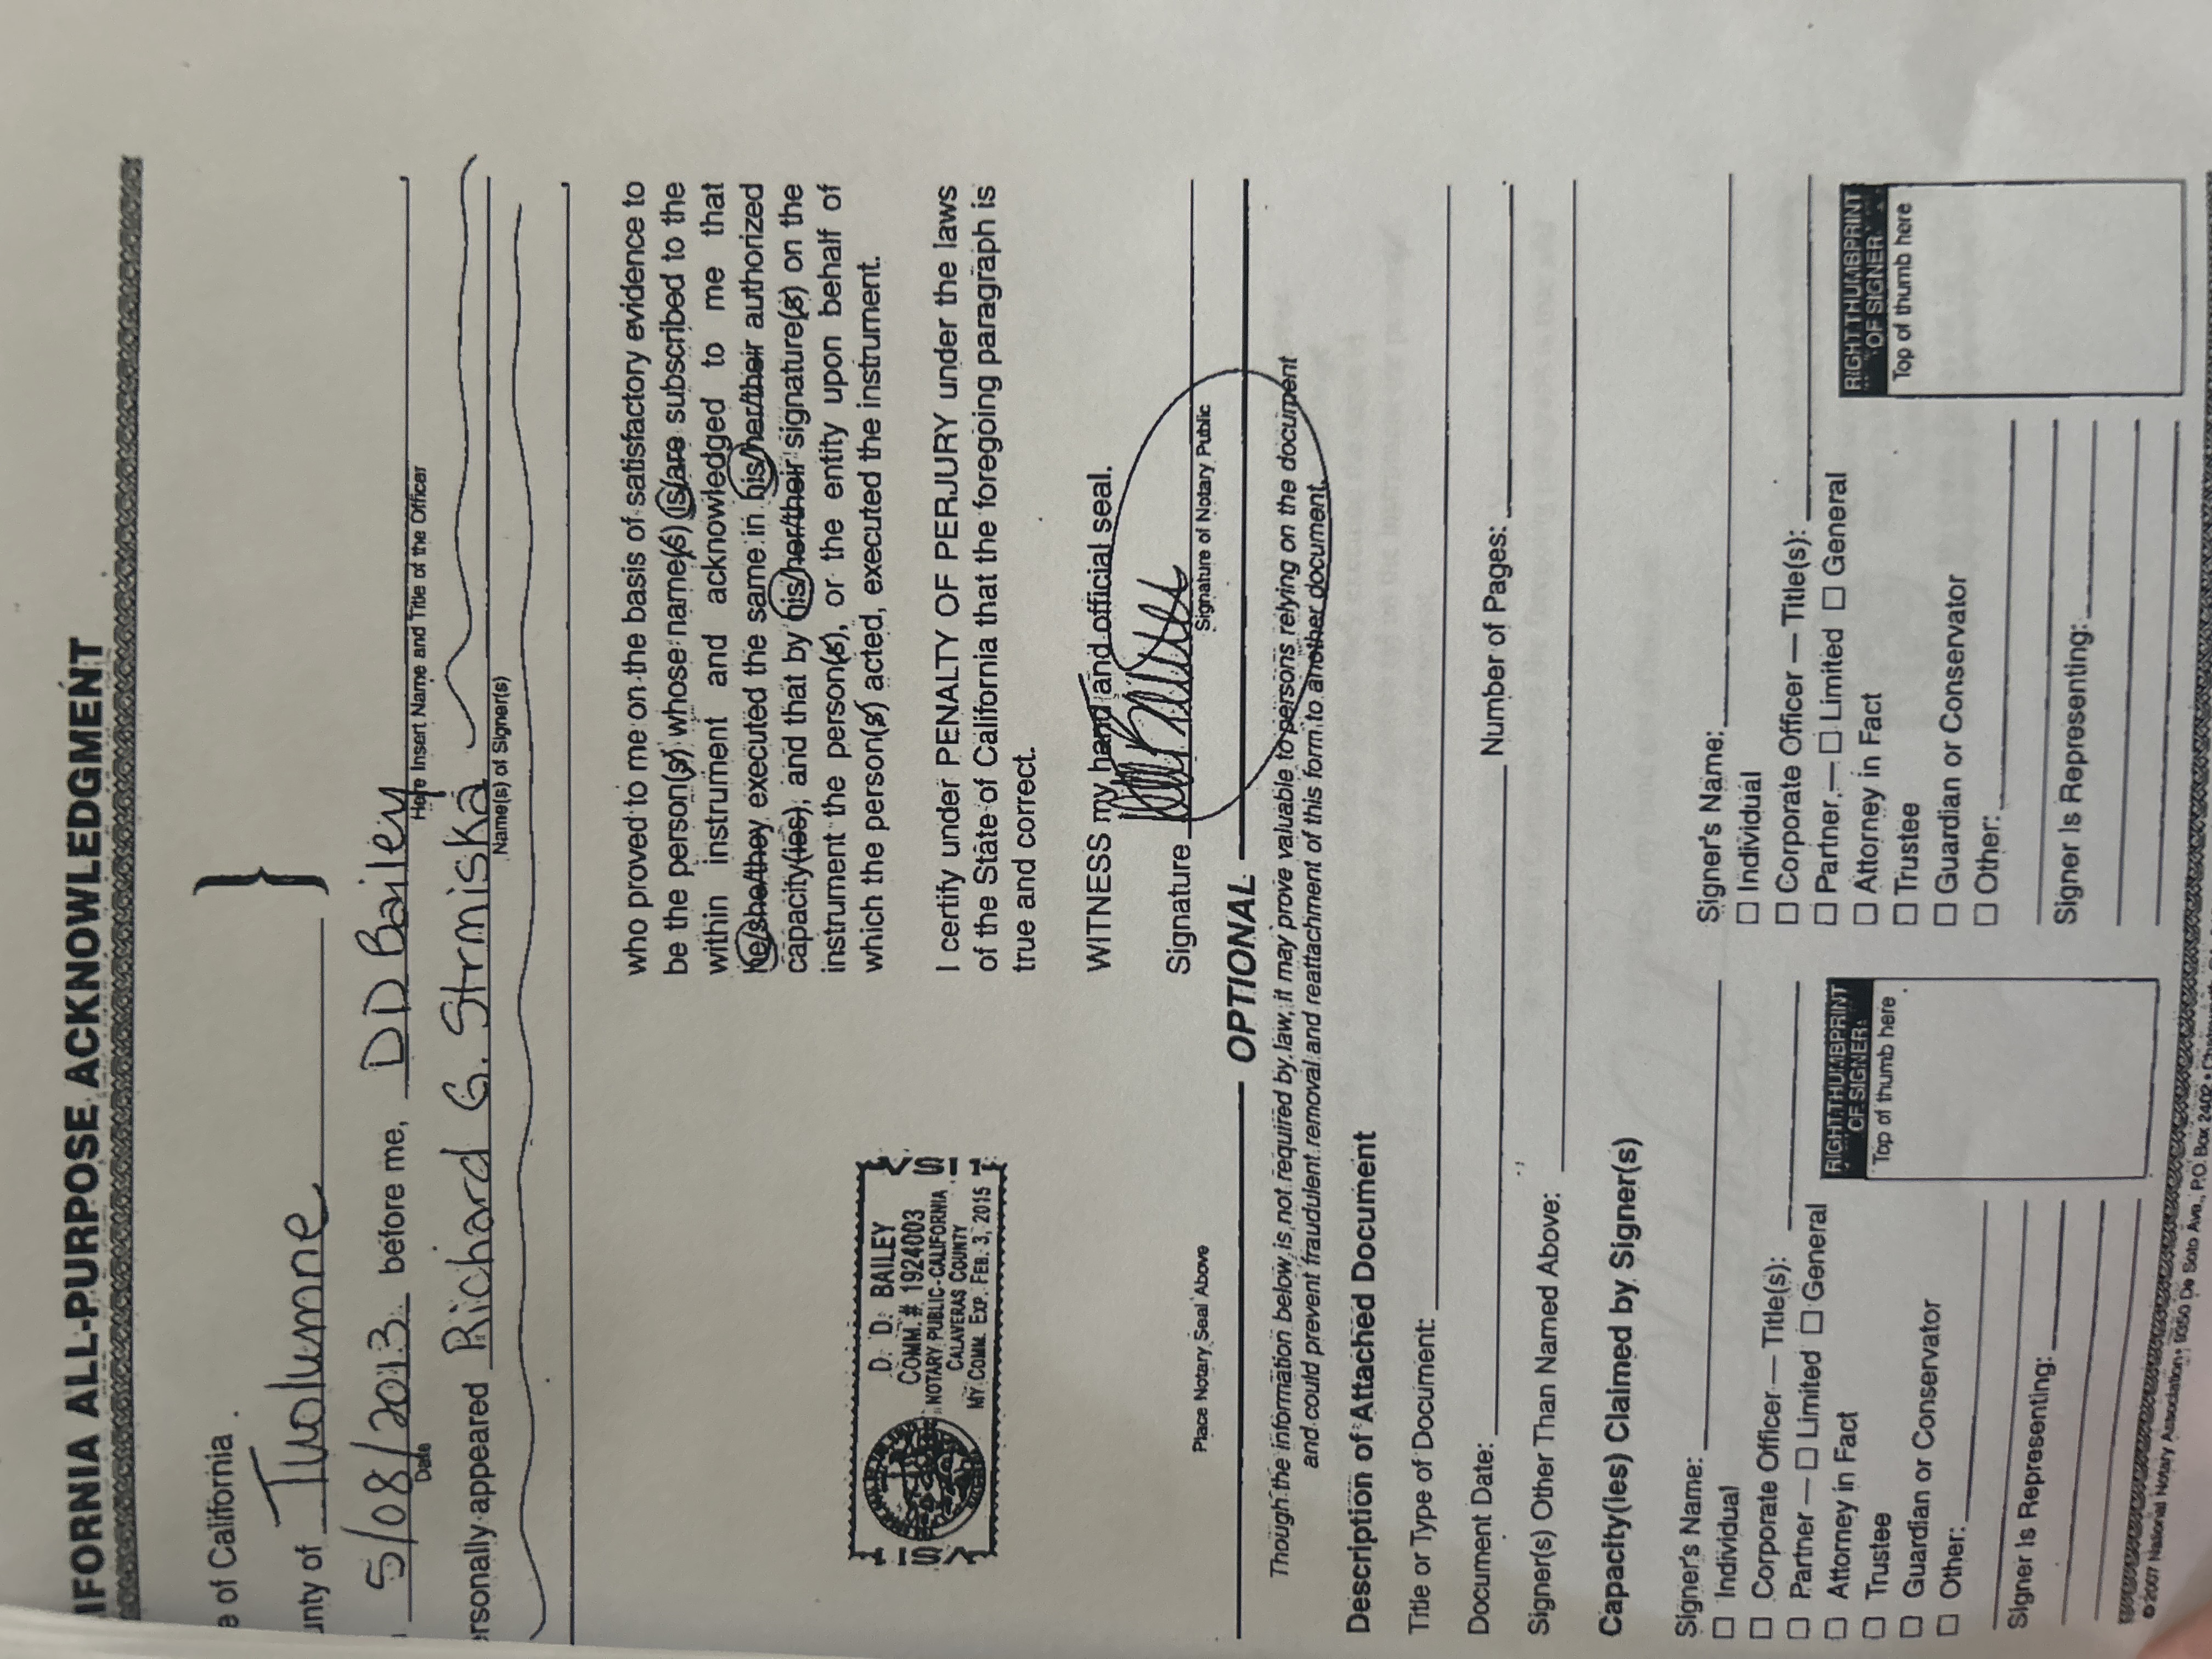 IFORNIA ALL-PURPOSE ACKNOWLEDGMENT
e of California
unty of Tuolumne
5/08/2013 before me, DD Bailey,
Date
Here Insert Name and Title of the Officer
ersonally appeared Richard G. Strmiska
Name(s) of Signer(s)
who proved to me on the basis of satisfactory evidence to
be the person(s) whose name(s) is/are subscribed to the
within instrument and acknowledged to me that
he/she/they executed the same in his/her/their authorized
capacity(ies), and that by his/her/their signature(s) on the
instrument the person(s), or the entity upon behalf of
which the person(s) acted, executed the instrument.
D. D. BAILEY
COMM. # 1924003
NOTARY PUBLIC-CALIFORNIA
CALAVERAS COUNTY
MY COMM. EXP. FEB. 3, 2015
VSI 1
VSI 1
I certify under PENALTY OF PERJURY under the laws
of the State of California that the foregoing paragraph is
true and correct.
WITNESS my hand and official seal.
Signature
Place Notary Seal Above
Signature of Notary Public
OPTIONAL
Though the information below is not required by law, it may prove valuable to persons relying on the document
and could prevent fraudulent removal and reattachment of this form to another document.
Description of Attached Document
Title or Type of Document:
Document Date: Number of Pages:
Signer(s) Other Than Named Above:
Capacity(ies) Claimed by Signer(s)
Signer's Name:
☐ Individual
☐ Corporate Officer — Title(s):
☐ Partner — ☐ Limited ☐ General
☐ Attorney in Fact
☐ Trustee
☐ Guardian or Conservator
☐ Other:
Signer Is Representing:
RIGHT THUMBPRINT
OF SIGNER
Top of thumb here
Signer's Name:
☐ Individual
☐ Corporate Officer — Title(s):
☐ Partner — ☐ Limited ☐ General
☐ Attorney in Fact
☐ Trustee
☐ Guardian or Conservator
☐ Other:
Signer Is Representing:
RIGHT THUMBPRINT
OF SIGNER
Top of thumb here
© 2007 National Notary Association • 9350 De Soto Ave., P.O. Box 2402 •